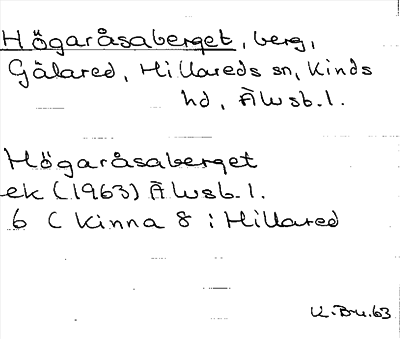 Högaråsaberget, berg,
Gälared, Hillareds sn, Kinds
hd, Älvsb. l.
Högaråsaberget
ek (1963) Älvsb. l.
6 C Kinna 8 i Hillared
K. Br. 63